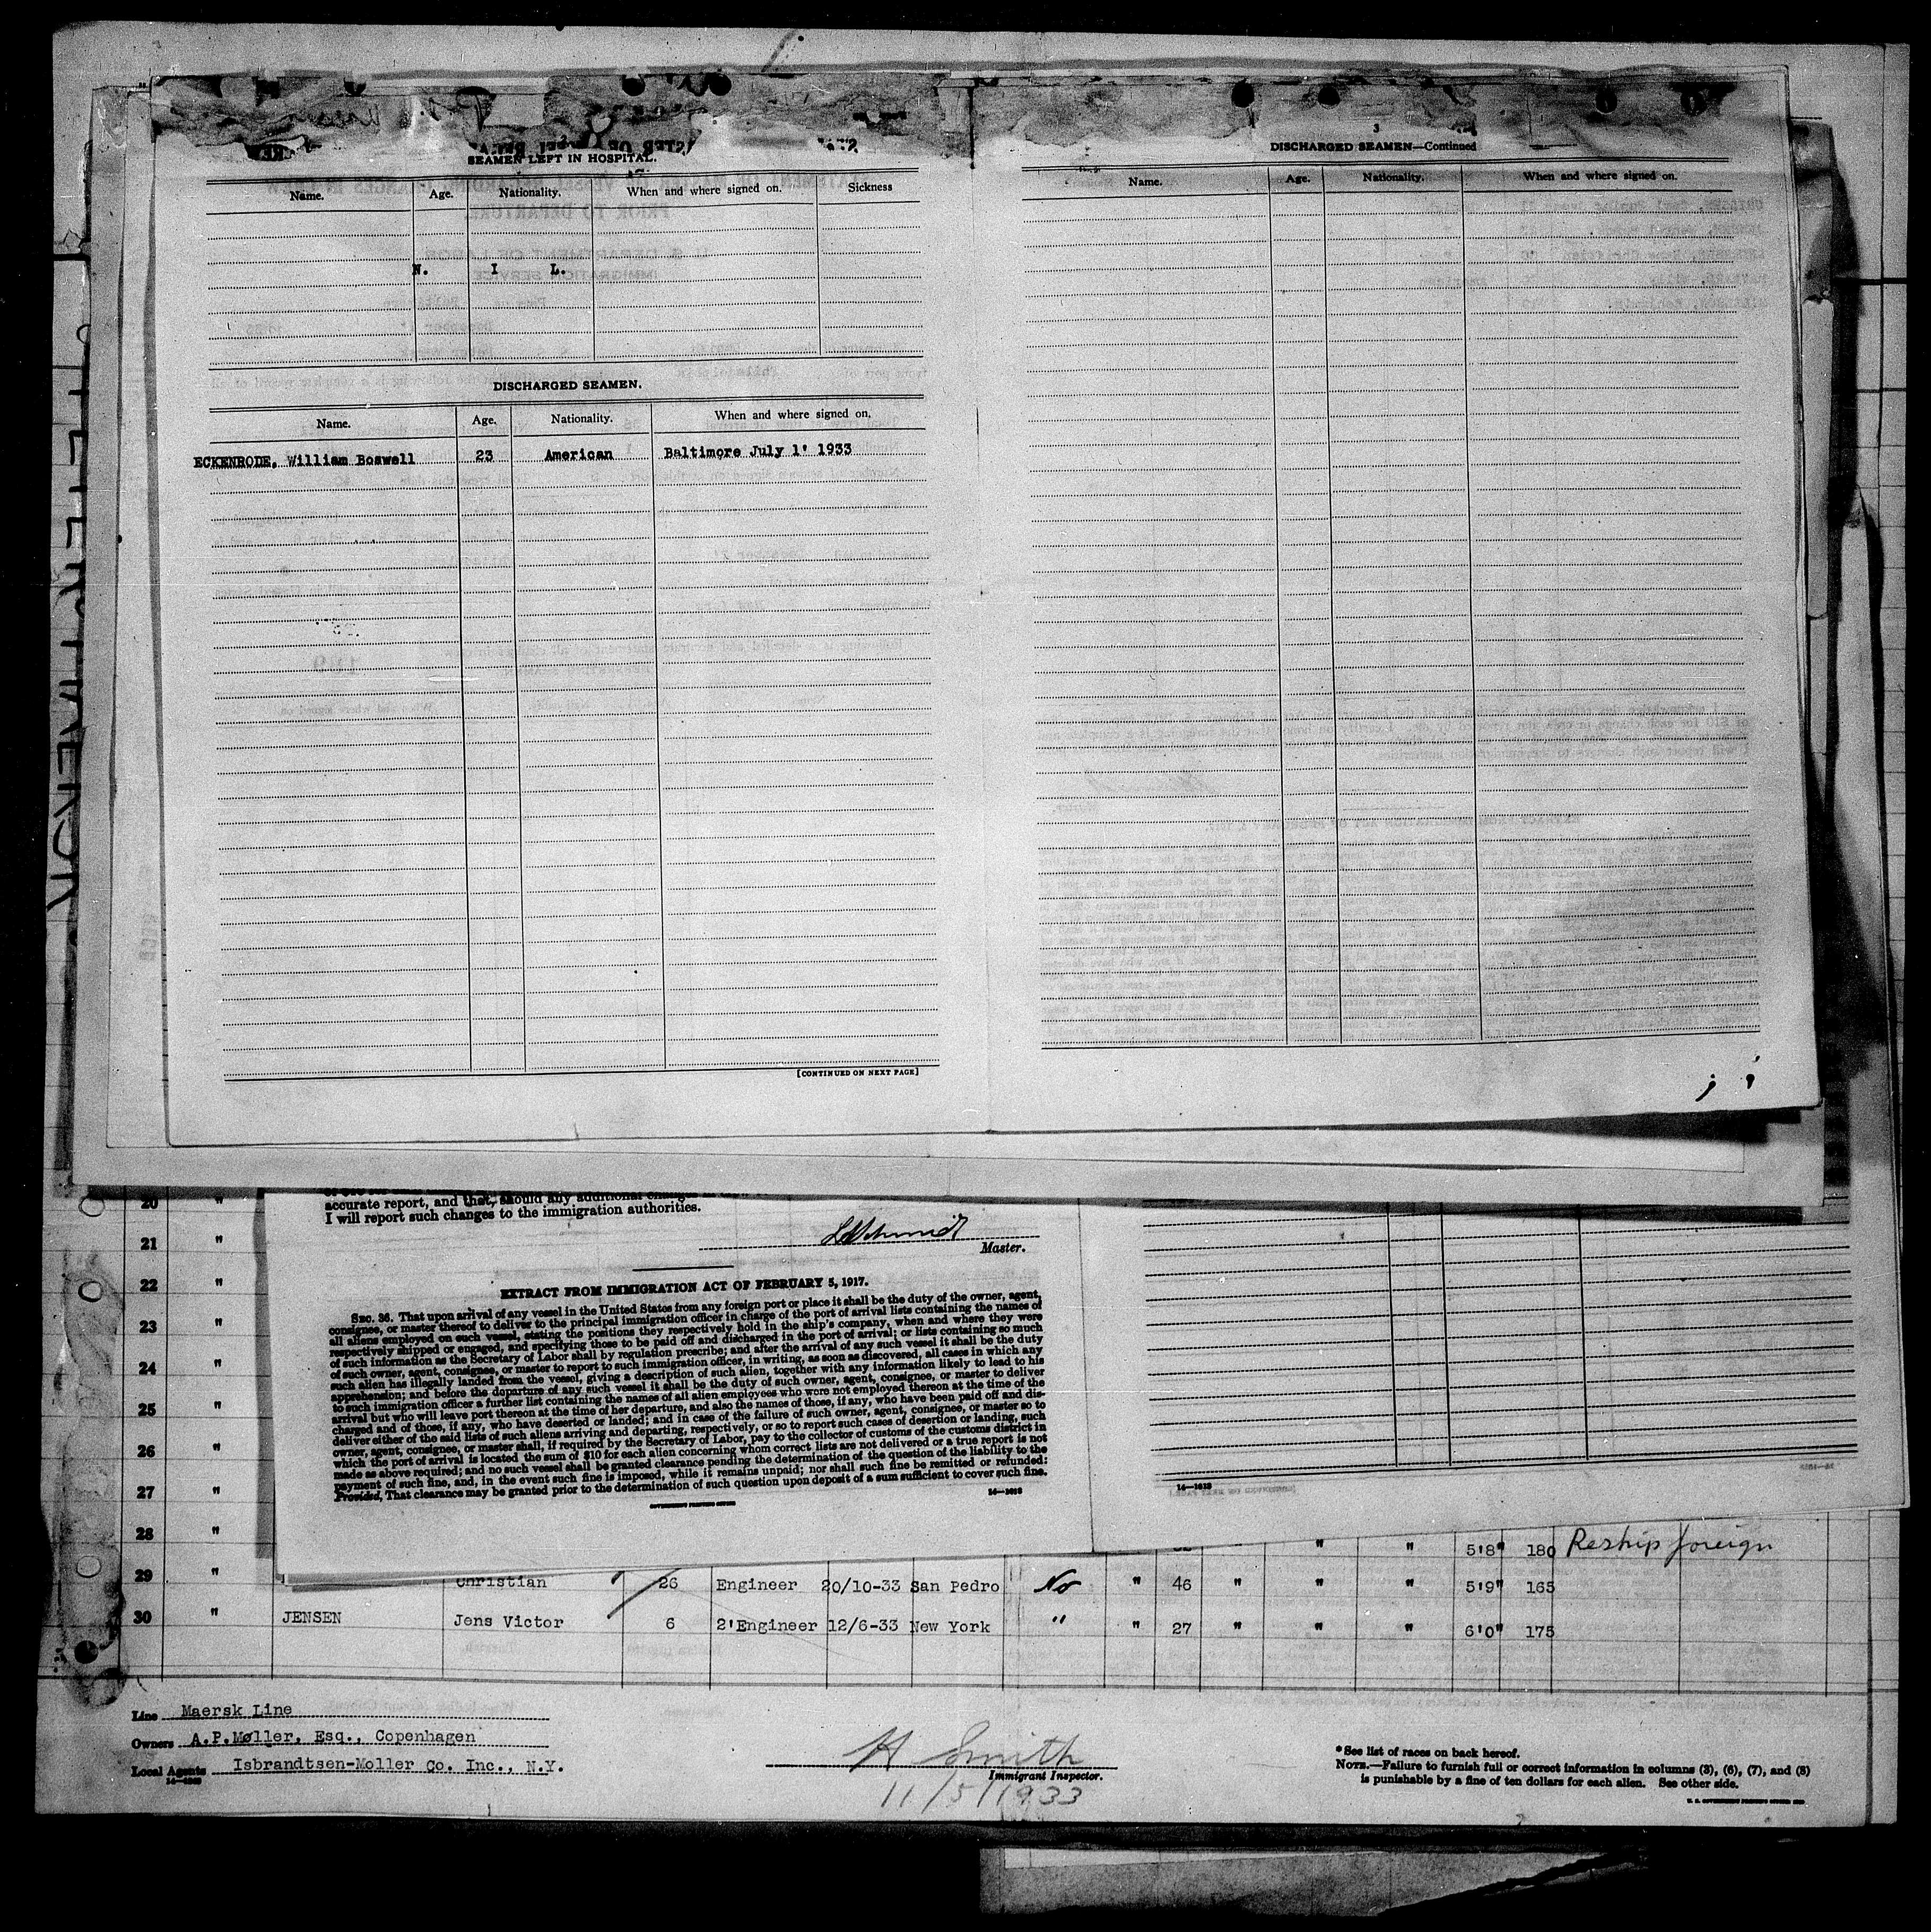 SEAMEN LEFT IN HOSPITAL.
Name. Age. Nationality. When and where signed on. Sickness
N. I L.
DISCHARGED SEAMEN.
Name. Age. Nationality. When and where signed on.
ECKENRODE, William Boswell 23 American Baltimore July 1' 1933
[CONTINUED ON NEXT PAGE]
3
DISCHARGED SEAMEN—Continued
Name. Age. Nationality. When and where signed on.
accurate report, and that, should any additional changes
I will report such changes to the immigration authorities.
Master.
EXTRACT FROM IMMIGRATION ACT OF FEBRUARY 5, 1917.
SEC. 36. That upon arrival of any vessel in the United States from any foreign port or place it shall be the duty of the owner, agent,
consignee, or master thereof to deliver to the principal immigration officer in charge of the port of arrival lists containing the names of
all aliens employed on such vessel, stating the positions they respectively hold in the ship's company, when and where they were
respectively shipped or engaged, and specifying those to be paid off and discharged in the port of arrival; or lists containing so much
of such information as the Secretary of Labor shall by regulation prescribe; and after the arrival of any such vessel it shall be the duty
of such owner, agent, consignee, or master to report to such immigration officer, in writing, as soon as discovered, all cases in which any
such alien has illegally landed from the vessel, giving a description of such alien, together with any information likely to lead to his
apprehension; and before the departure of any such vessel it shall be the duty of such owner, agent, consignee, or master to deliver
to such immigration officer a further list containing the names of all alien employees who were not employed thereon at the time of the
arrival but who will leave port thereon at the time of her departure, and also the names of those, if any, who have been paid off and dis-
charged and of those, if any, who have deserted or landed; and in case of the failure of such owner, agent, consignee, or master so to
deliver either of the said lists of such aliens arriving and departing, respectively, or so to report such cases of desertion or landing, such
owner, agent, consignee, or master shall, if required by the Secretary of Labor, pay to the collector of customs of the customs district in
which the port of arrival is located the sum of $10 for each alien concerning whom correct lists are not delivered or a true report is not
made as above required; and no such vessel shall be granted clearance pending the determination of the question of the liability to the
payment of such fine, and, in the event such fine is imposed, while it remains unpaid; nor shall such fine be remitted or refunded:
Provided, That clearance may be granted prior to the determination of such question upon deposit of a sum sufficient to cover such fine.
GOVERNMENT PRINTING OFFICE 14—1613
14—1613
20 "
21 "
22 "
23 "
24 "
25 "
26 "
27 "
28 " " " 5'8" 180 Reship foreign
29 " Christian 26 Engineer 20/10-33 San Pedro No " 46 " " " 5'9" 165
30 " JENSEN Jens Victor 6 2'Engineer 12/6-33 New York " " 27 " " " 6'0" 175
Line Maersk Line
Owners A.P.Møller, Esq., Copenhagen
Local Agents Isbrandtsen-Moller Co. Inc., N.Y.
H Smith
Immigrant Inspector.
11/5/1933
* See list of races on back hereof.
NOTE.—Failure to furnish full or correct information in columns (3), (6), (7), and (8)
is punishable by a fine of ten dollars for each alien. See other side.